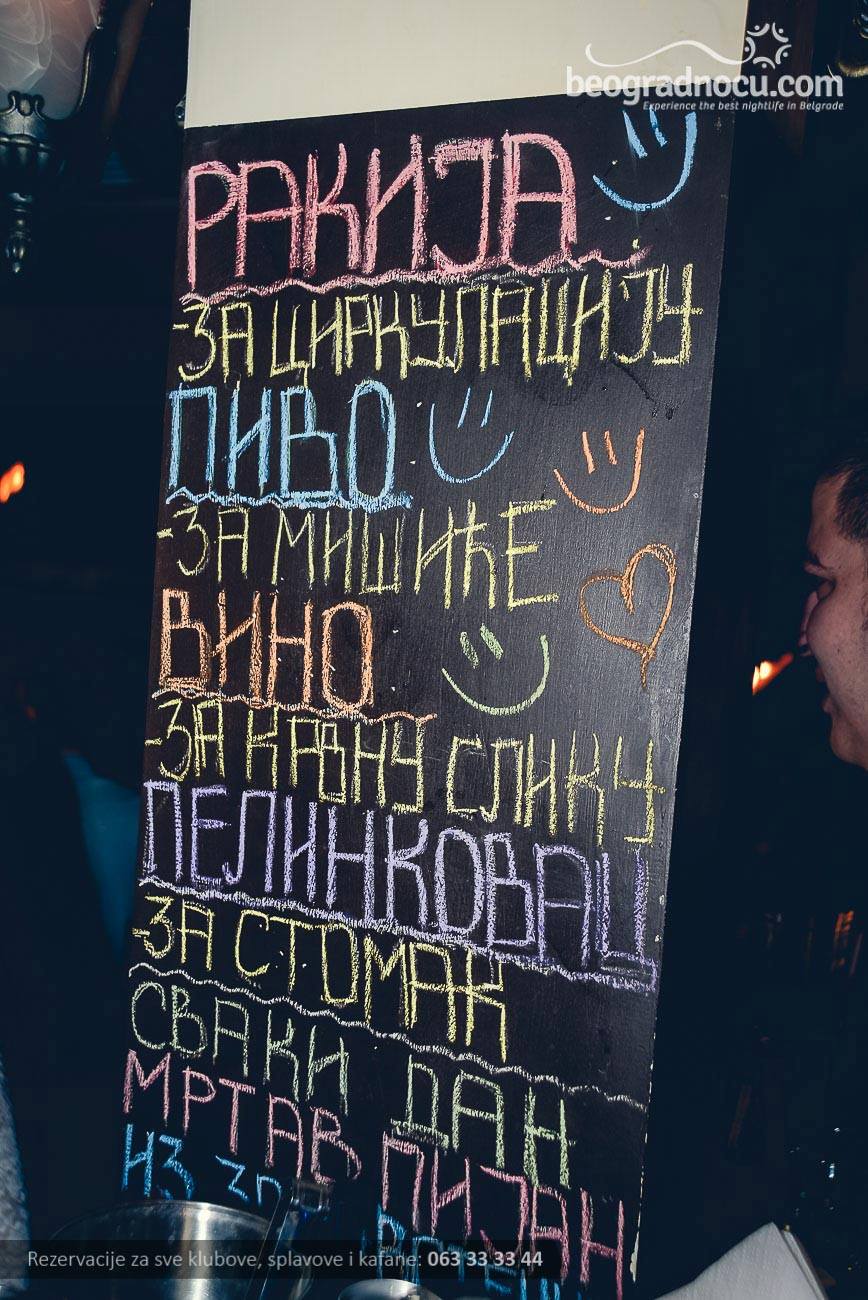 beogradnocu.com
Experience the best nightlife in Belgrade
РАКИЈА
-ЗА ЦИРКУЛАЦИЈУ
ПИВО
-ЗА МИШИЋЕ
ВИНО
-ЗА КРВНУ СЛИКУ
ПЕЛИНКОВАЦ
-ЗА СТОМАК
СВАКИ ДАН
МРТАВ ПИЈАН
ИЗ
Rezervacije za sve klubove, splavove i kafane: 063 33 33 44